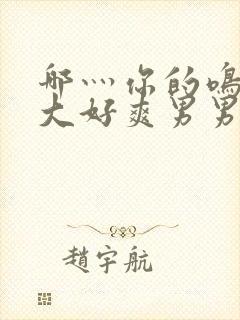 哪灬你的鳴
大好爽男男
趙宇航